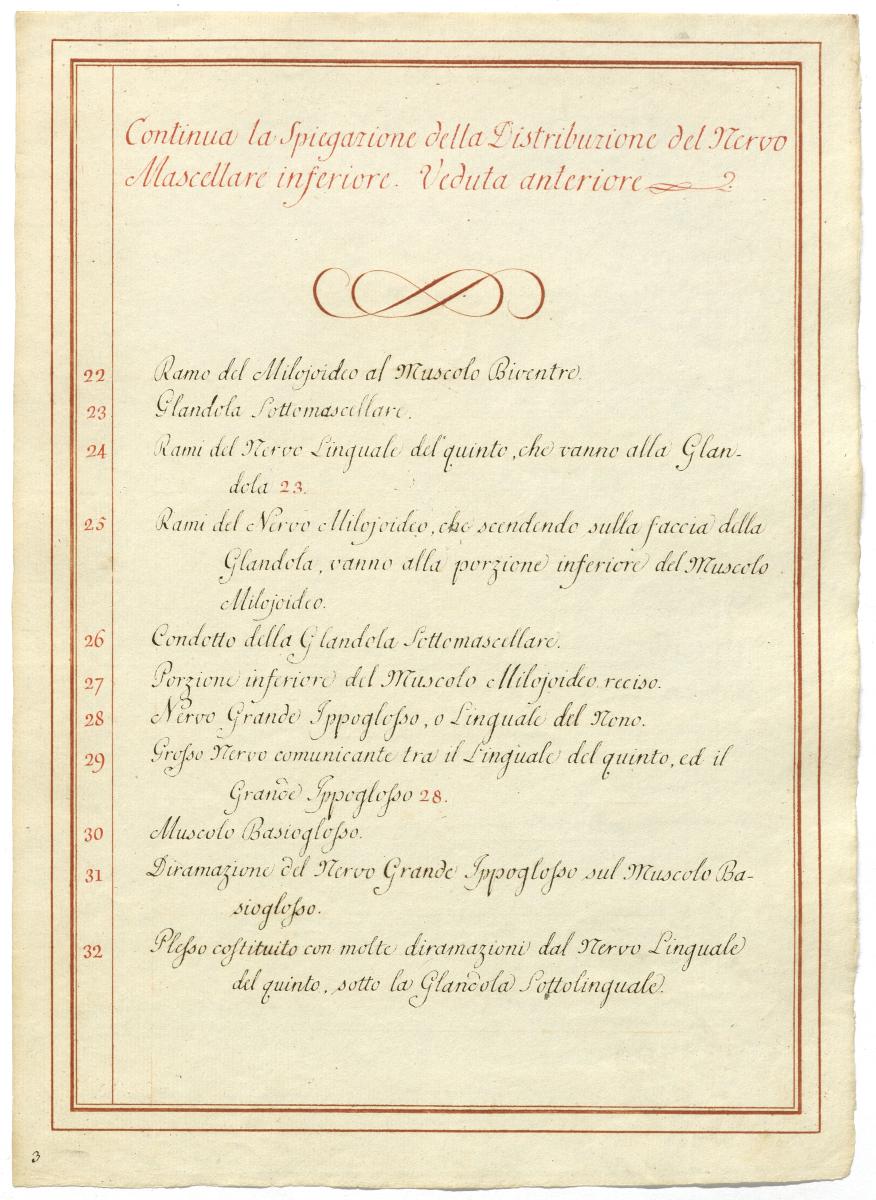 Continua la Spiegazione della Distribuzione del Nervo
Mascellare inferiore. Veduta anteriore 2.
22 Ramo del Milojoideo al Muscolo Biventre.
23 Glandola Sottomascellare.
24 Rami del Nervo Linguale del quinto, che vanno alla Glan-
dola 23.
25 Rami del Nervo Milojoideo, che scendendo sulla faccia della
Glandola, vanno alla porzione inferiore del Muscolo
Milojoideo.
26 Condotto della Glandola Sottomascellare.
27 Porzione inferiore del Muscolo Milojoideo reciso.
28 Nervo Grande Ippogloſso, o Linguale del Nono.
29 Groſso Nervo comunicante tra il Linguale del quinto, ed il
Grande Ippogloſso 28.
30 Muscolo Basiogloſso.
31 Diramazione del Nervo Grande Ippogloſso sul Muscolo Ba-
siogloſso.
32 Pleſso coſtituito con molte diramazioni dal Nervo Linguale
del quinto, sotto la Glandola Sottolinguale.
3